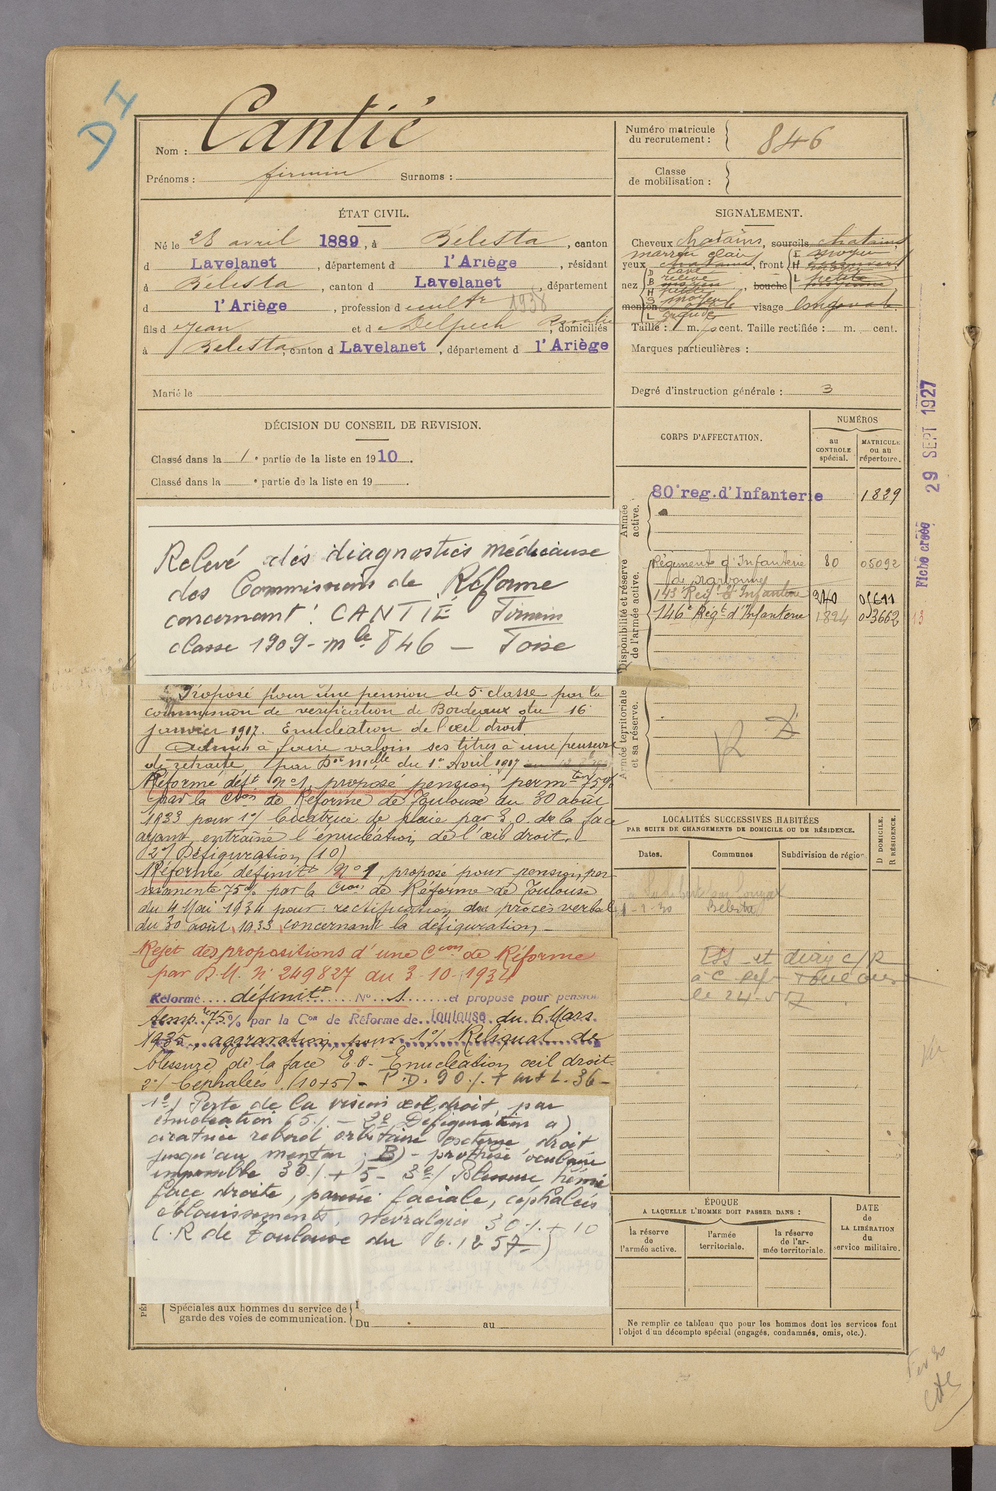 DI
Nom : Cantié
Prénoms : firmin Surnoms :
Numéro matricule
du recrutement : 846
Classe
de mobilisation :
ÉTAT CIVIL.
Né le 28 avril 1889, à Bélesta, canton
d Lavelanet, département d l'Ariège, résidant
à Bélesta, canton d Lavelanet, département
d l'Ariège, profession d cultr 1938
fils d e Jean et d e Delpech Rosalie, domiciliés
à Bélesta, canton d Lavelanet, département d l'Ariège
Marié le
SIGNALEMENT.
Cheveux chatains, sourcils chatains
marron clair
yeux chatains, front
nez bouche
menton visage
Taille : 1 m. cent. Taille rectifiée : m. cent.
Marques particulières :
Degré d'instruction générale : 3
DÉCISION DU CONSEIL DE REVISION.
Classé dans la 1e partie de la liste en 1910.
Classé dans la e partie de la liste en 19 .
CORPS D'AFFECTATION.
NUMÉROS
au
CONTROLE
spécial.
MATRICULE
ou au
répertoire.
Armée
active.
80e reg. d'Infanterie 1839
Disponibilité et réserve
de l'armée active.
Régiment d'Infanterie 80 05092
de Narbonne
143e Reg. d'Infanterie
146e Regt d'Infanterie 1824 03662 13
Armée territoriale
et sa réserve.
R D
Fiche créée 29 SEPT 1927
Relevé des diagnostics médicaux
des Commissions de Réforme
concernant : CANTIE Firmin
classe 1909 - mle 846 — Foix
Proposé pour une pension de 5e classe par la
commission de vérification de Bordeaux du 16
janvier 1917. Enucléation de l'œil droit
Admis à faire valoir ses titres à une pension
de retraite par Don Mlle du 1er Avril 1917
Réformé déft No 1, proposé pension perm 75%
par la Con de Réforme de Toulouse du 30 août
1933 pour 1o/ Cicatrice de plaie par E.O. de la face
ayant entraîné l'énucléation de l'œil droit.
2o/ Défiguration (10)
Réformé définitt No 1, proposé pour pension per-
manente 75% par la Con de Réforme de Toulouse
du 4 Mai 1934 pour rectification du procès verbal
du 30 août 1933 concernant la défiguration -
Rejet des propositions d'une Con de Réforme
par D.M. No 249827 du 3-10-1934
Réformé définitt No 1 et proposé pour pension
temp. 75% par la Con de Réforme de Toulouse du 6 Mars
1935, aggravation, pour 1o/ Reliquat de
blessure de la face E O. Enucléation œil droit
2o/ Céphalées (10+5) - P.D. 90%
1o/ Perte de la vision œil droit, par
énucléation 65% - 2o Défiguration a)
cicatrice rebord orbitaire externe droit
jusqu'au menton ; B) - prothèse oculaire
impossible 30% + 5 - 3o/ Blessure hémi
face droite, parésie faciale, céphalées
éblouissements, névralgies 30% + 10
C.R de Toulouse du 6.12 57-)
LOCALITÉS SUCCESSIVES HABITÉES
PAR SUITE DE CHANGEMENTS DE DOMICILE OU DE RÉSIDENCE.
Dates. Communes Subdivision de région
D DOMICILE.
R RÉSIDENCE.
1-2-30 Bélesta
ESS et diag C/R
à C. Réf Toulouse
le 24-5 57
ÉPOQUE
A LAQUELLE L'HOMME DOIT PASSER DANS :
la réserve
de
l'armée active.
l'armée
territoriale.
la réserve
de l'ar-
mée territoriale.
DATE
de
LA LIBÉRATION
du
service militaire.
Spéciales aux hommes du service de
garde des voies de communication.
Du au
Ne remplir ce tableau que pour les hommes dont les services font
l'objet d'un décompte spécial (engagés, condamnés, omis, etc.).